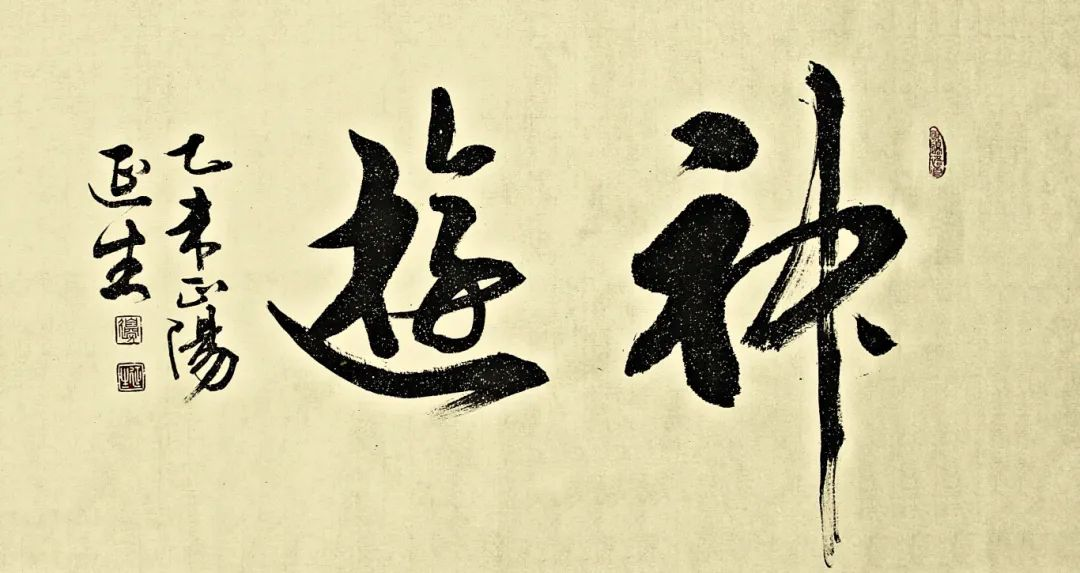 神遊
乙未正陽
延生